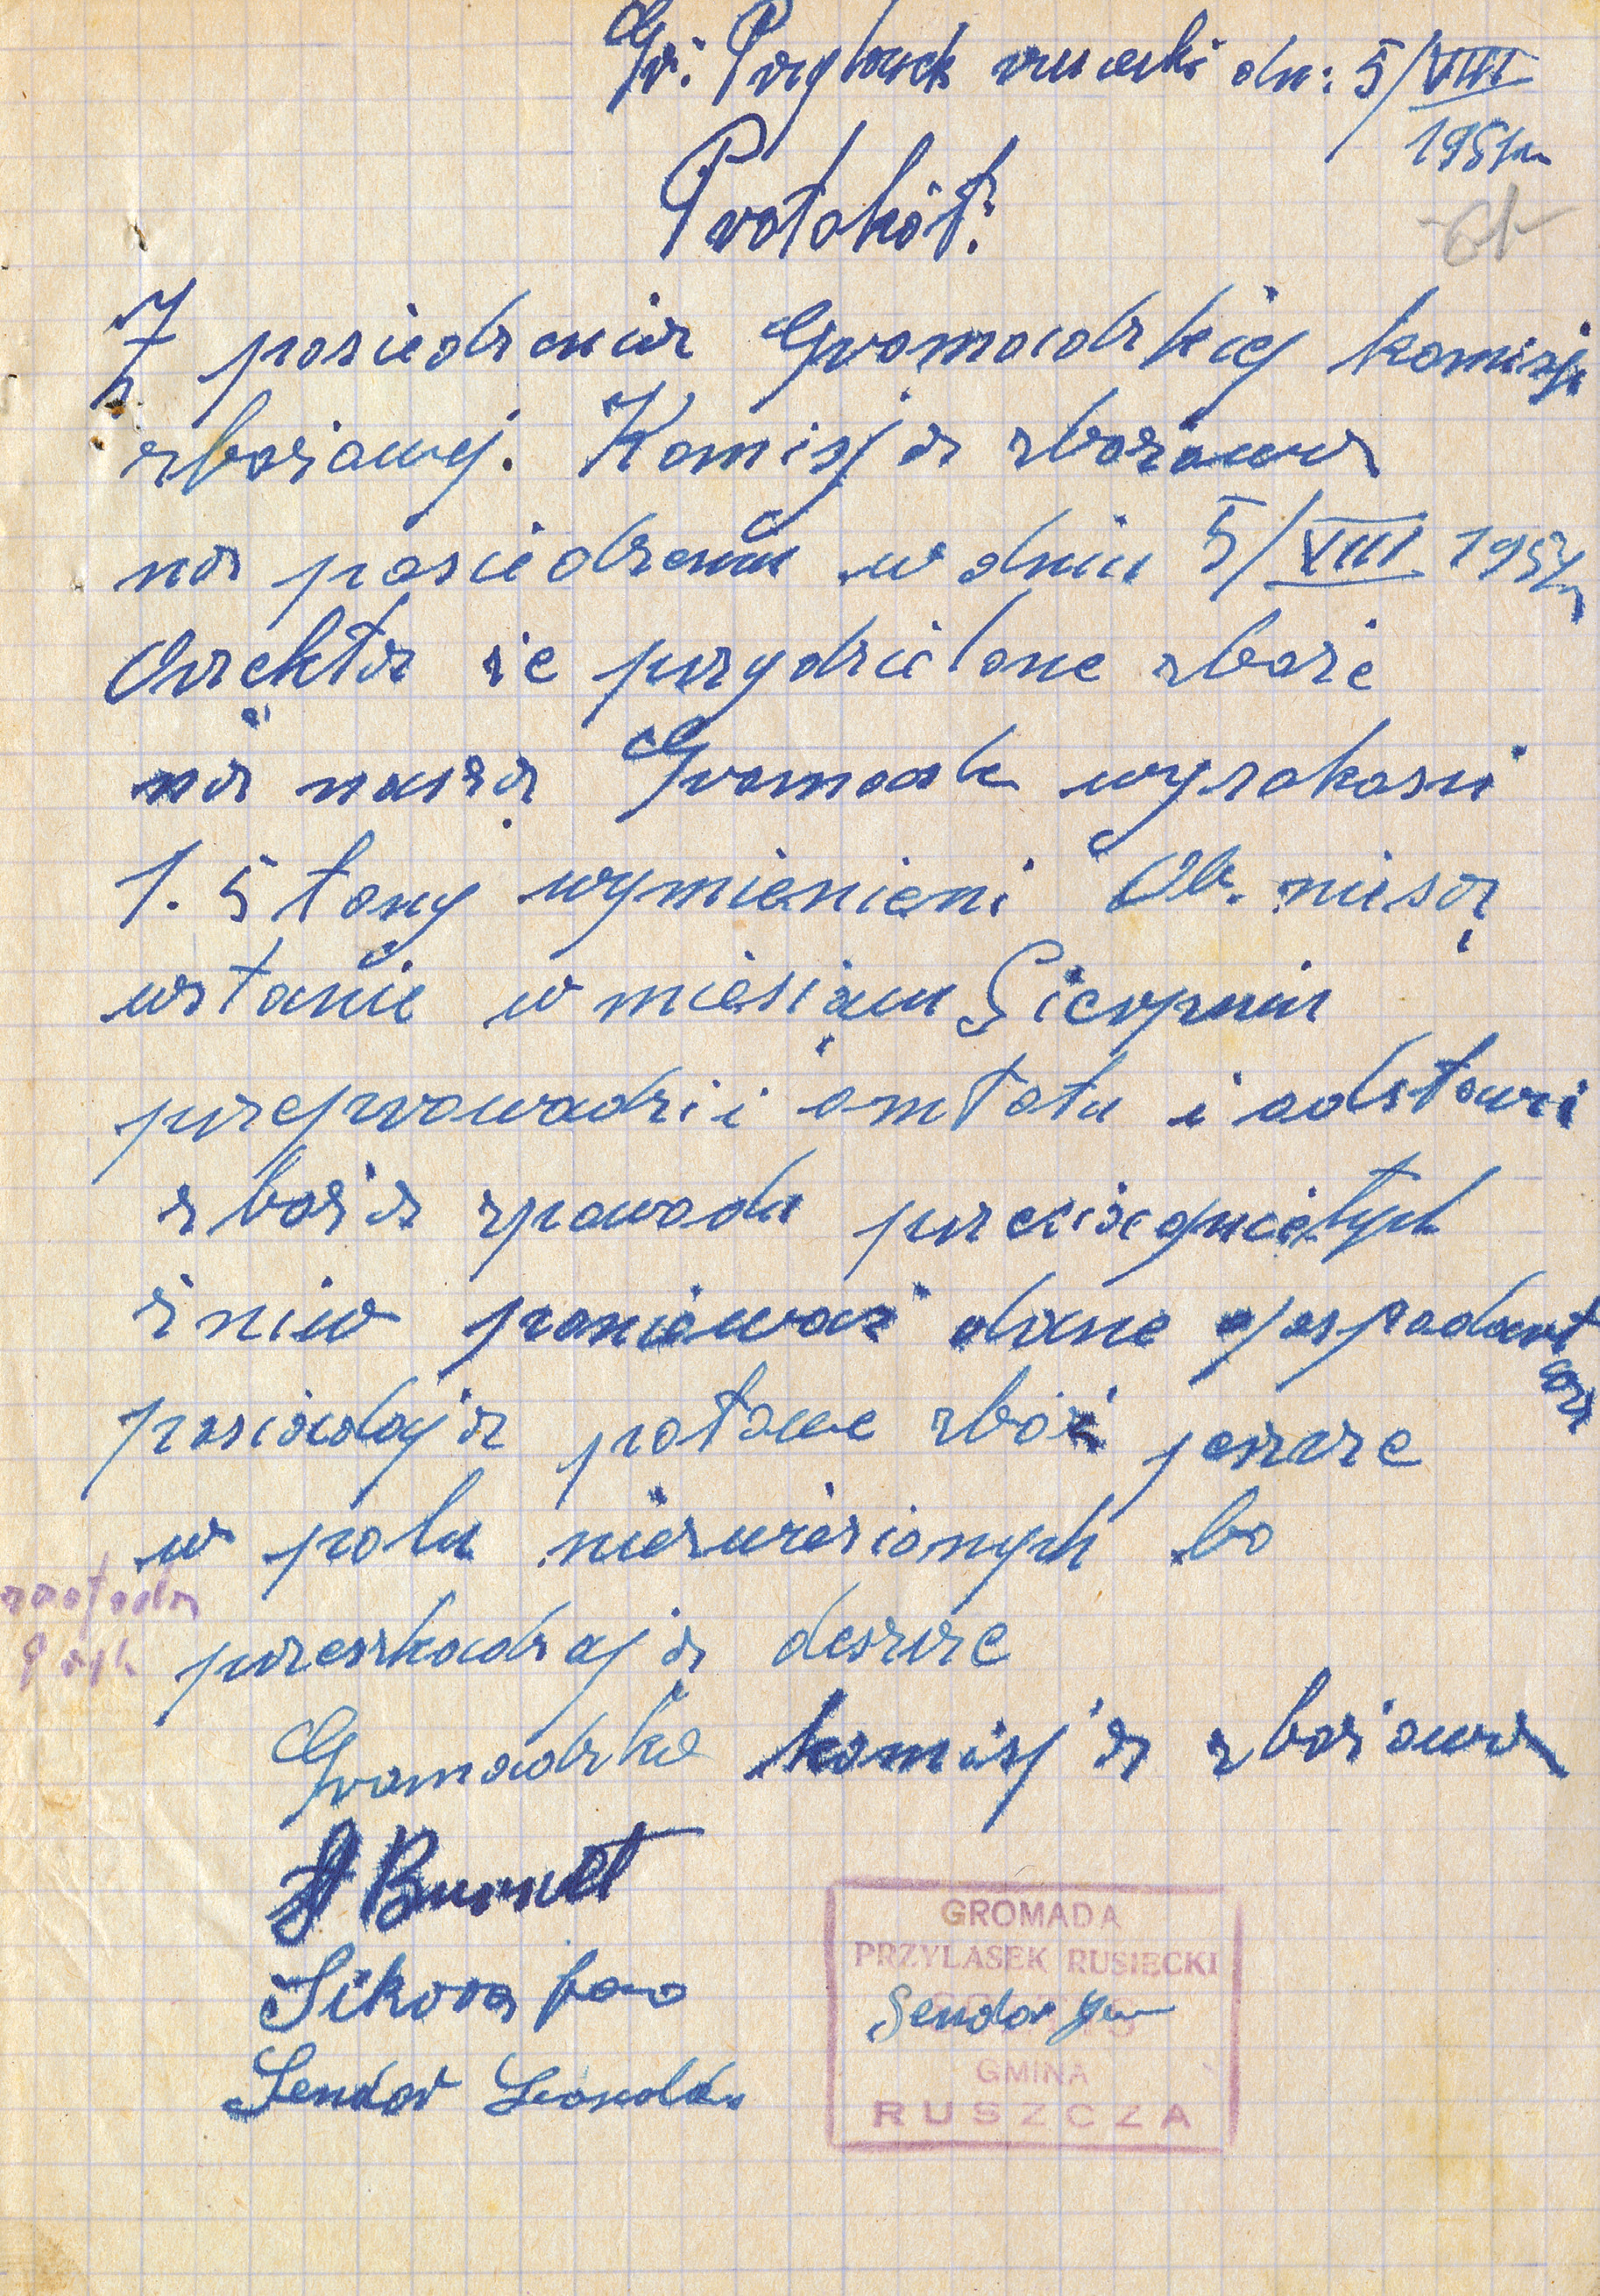 Gr. Przylasek rusiecki dn: 5/VIII
1951r
Protokół:
Z posiedzenia Gromadzkiej komisji
zbożowej. Komisja zbożowa
na posiedzeniu w dniu 5/VIII 1951r
Orzekła że przydzielone zboże
na naszą Gromade wyrokosci
1.5 tony wymienieni Ob. niesą
wstanie w miesiącu Sierpniu
przeprowadzii omłotu i odstawi
zboża zpowodu przeciągniętych
żniw ponieważ dane gospodarst
wora
posiadają połowe zbóż jeszcze
w polu niezwiezionych bo
przeszkadzają deszcze
Gromadzka komisja zbożowa
Sikora
Sendor
GROMADA
PRZYLASEK RUSIECKI
Sendor Jan
GMINA
RUSZCZA